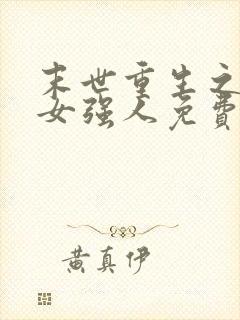 末世重生之
女强人免費
黄真伊